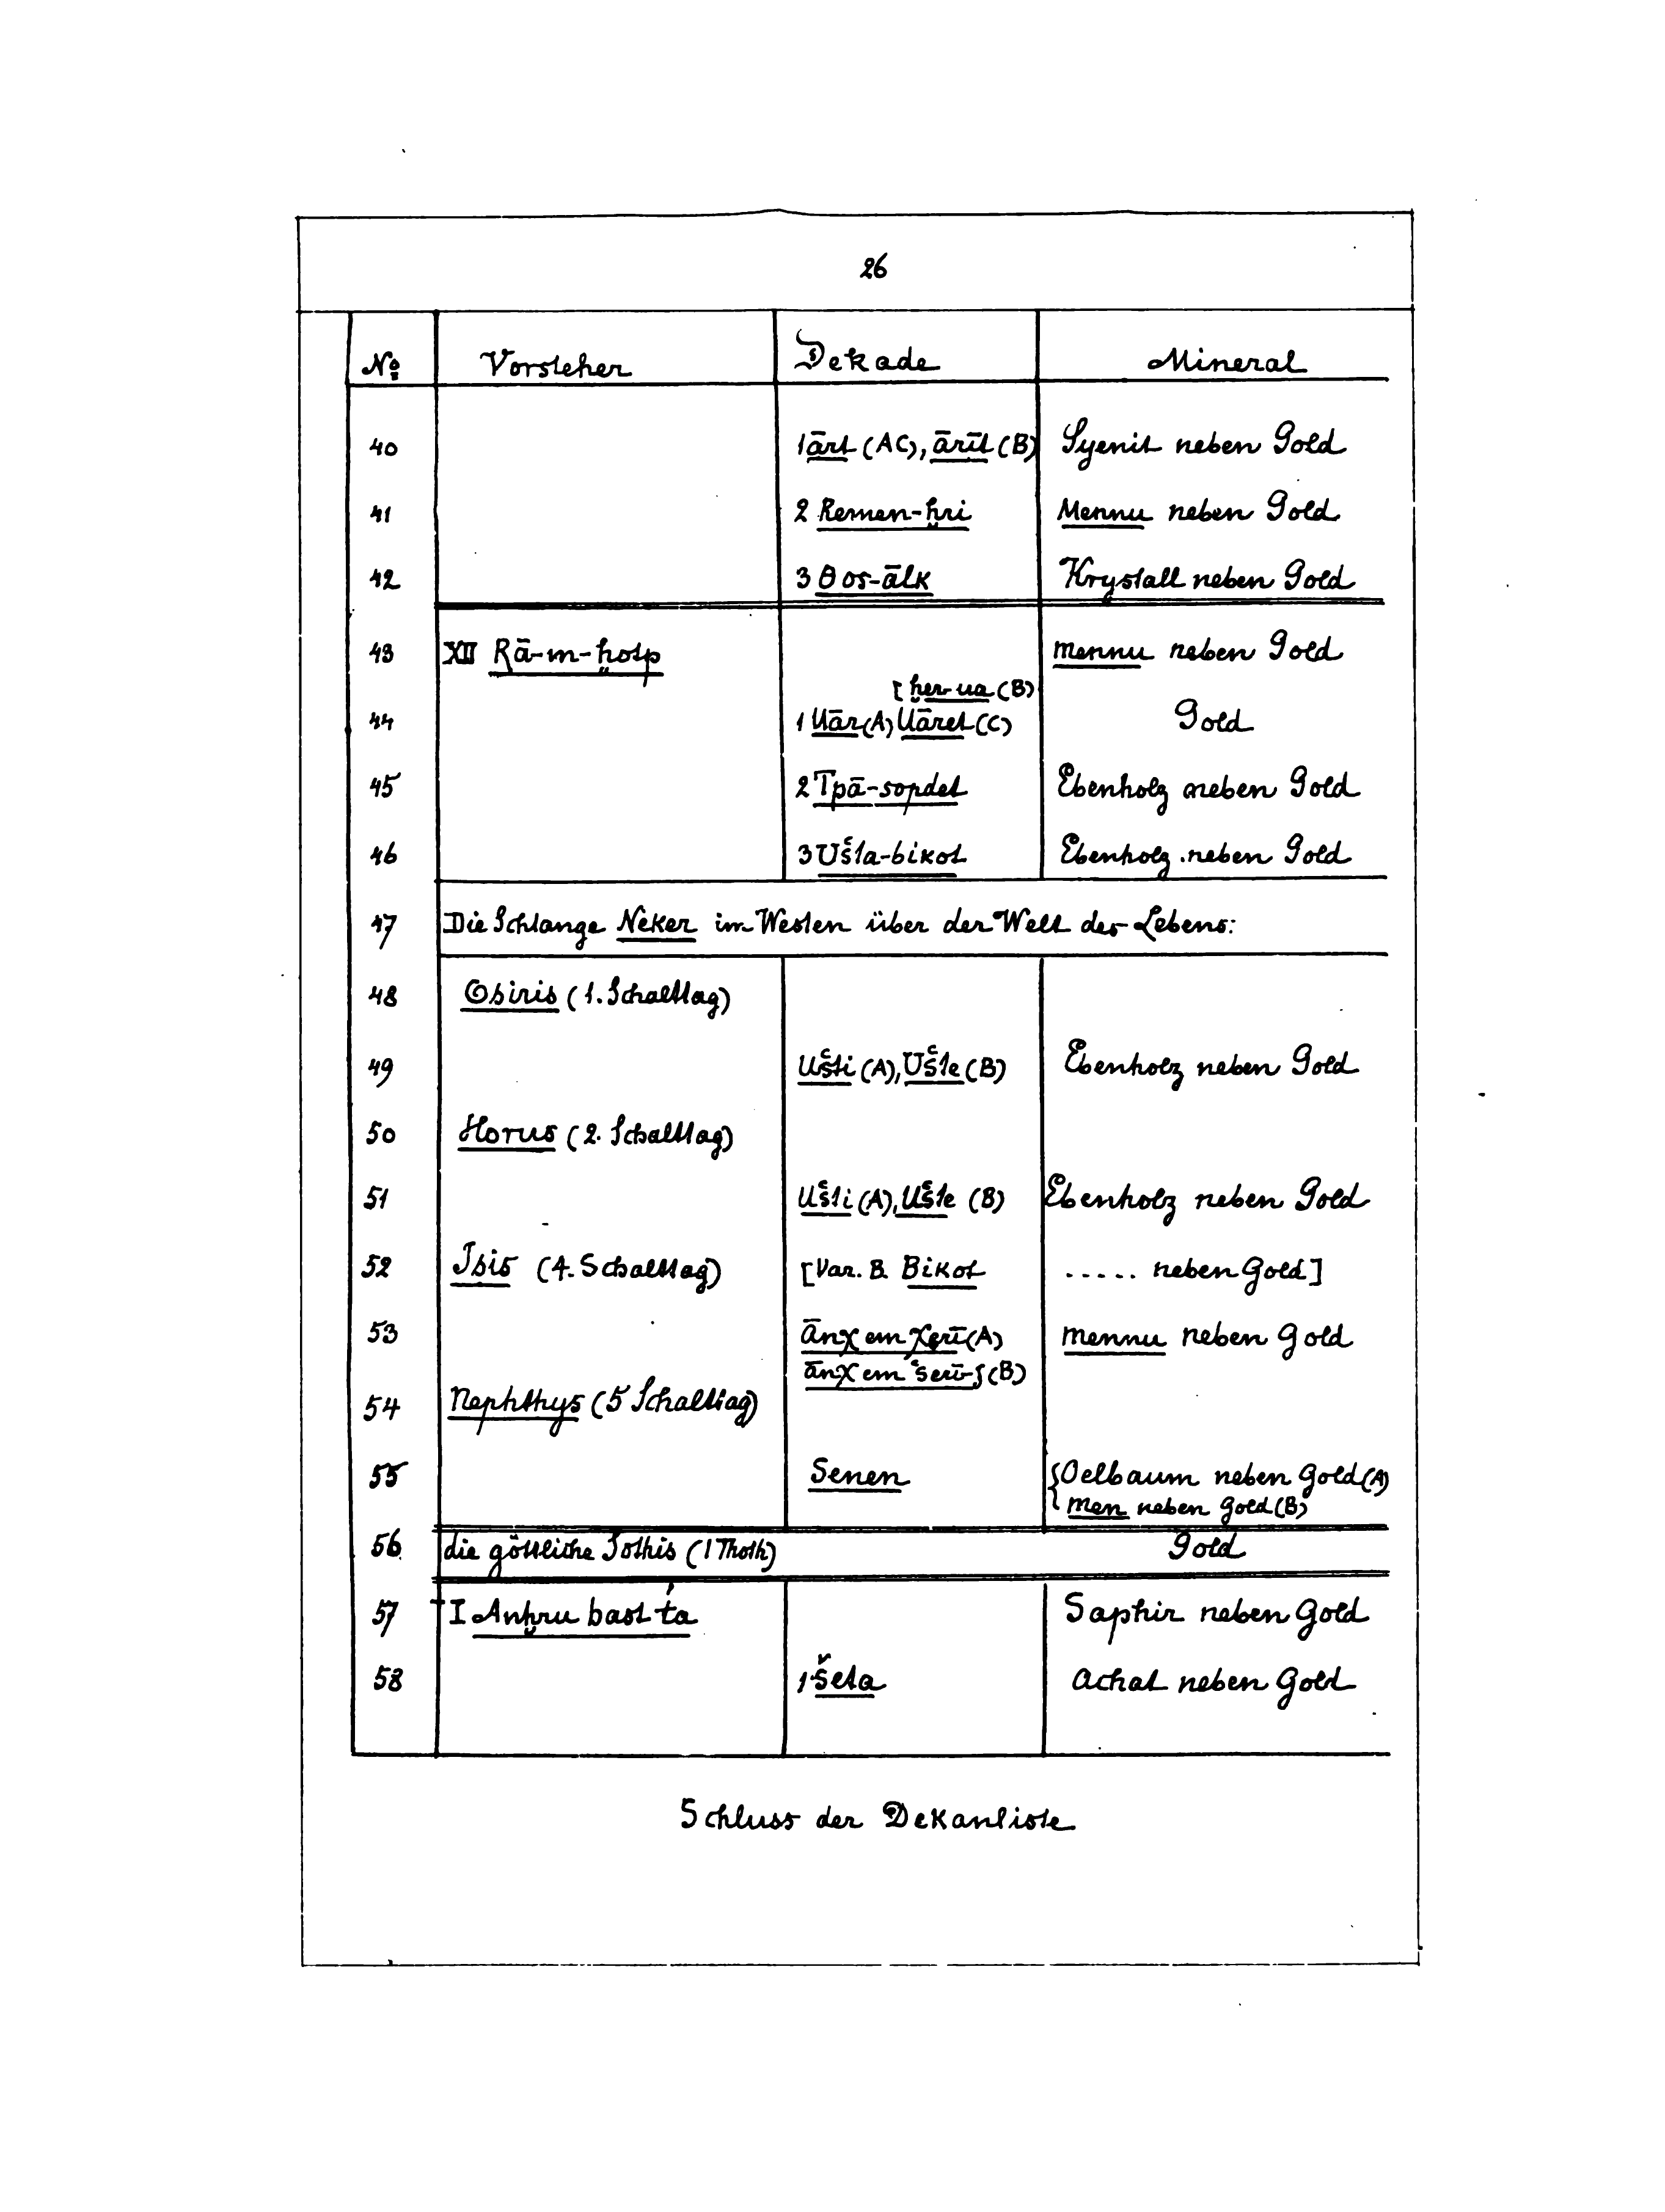 26
№ Vorsteher Dekade Mineral
40 1 ārt (AC), ārīt (B) Syenit neben Gold
41 2 Remen-ḥri Mennu neben Gold
42 3 θos-ālk Krystall neben Gold
43 XII Rā-m-ḥotp mennu neben Gold
[ḥer-ua (B)
44 1 Uār (A) Uāret (C) Gold
45 2 Tpā-sopdet Ebenholz neben Gold
46 3 Ušta-bikot Ebenholz neben Gold
47 Die Schlange Neker im Westen über der Welt des Lebens:
48 Osiris (1. Schalttag)
49 Ušti (A), Ušte (B) Ebenholz neben Gold
50 Horus (2. Schalttag)
51 Ušti (A), Ušte (B) Ebenholz neben Gold
52 Isis (4. Schalttag) [Var. B. Bikot ..... neben Gold]
53 ānχ em (A) mennu neben Gold
ānχ em (B)
54 Nephthys (5 Schalttag)
55 Senen {Oelbaum neben Gold (A)
men neben Gold (B)
56 die göttliche Sothis (1 Thoth) Gold
57 I Anḥru bast ta Saphir neben Gold
58 1 Šeta Achat neben Gold
Schluss der Dekanliste